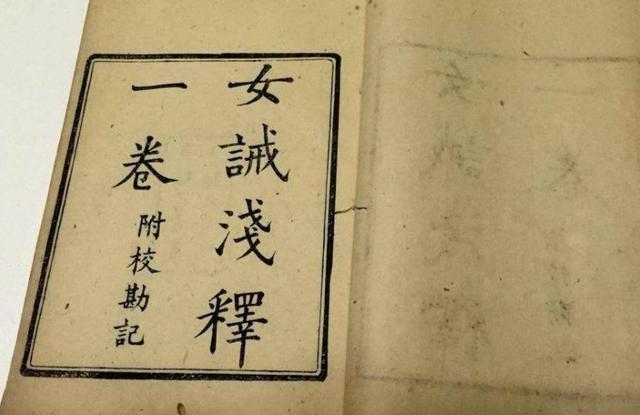 女誡淺釋
一卷附校勘記